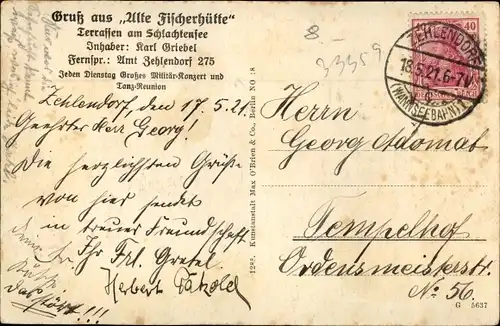 Gruß aus „Alte Fischerhütte"
Terrassen am Schlachtensee
Inhaber: Karl Griebel
Fernspr.: Amt Zehlendorf 275
Jeden Dienstag Großes Militär-Konzert und
Tanz-Reunion
Zehlendorf den 17.5.21.
Geehrter Herr Georg!
Die herzlichsten Grüße
von hier sendet
in treuer Freundschaft
Ihr Frl. Gretel
Herbert
Das stört!!!
1288. Kunstanstalt Max O'Brien & Co., Berlin NO 18
8-
33359
40
ZEHLENDORF
18.5.21.6-7V.
(WANNSEEBAHN)
Herrn
Georg Adomat
Tempelhof
Ordensmeisterstr.
No 56.
G 5637